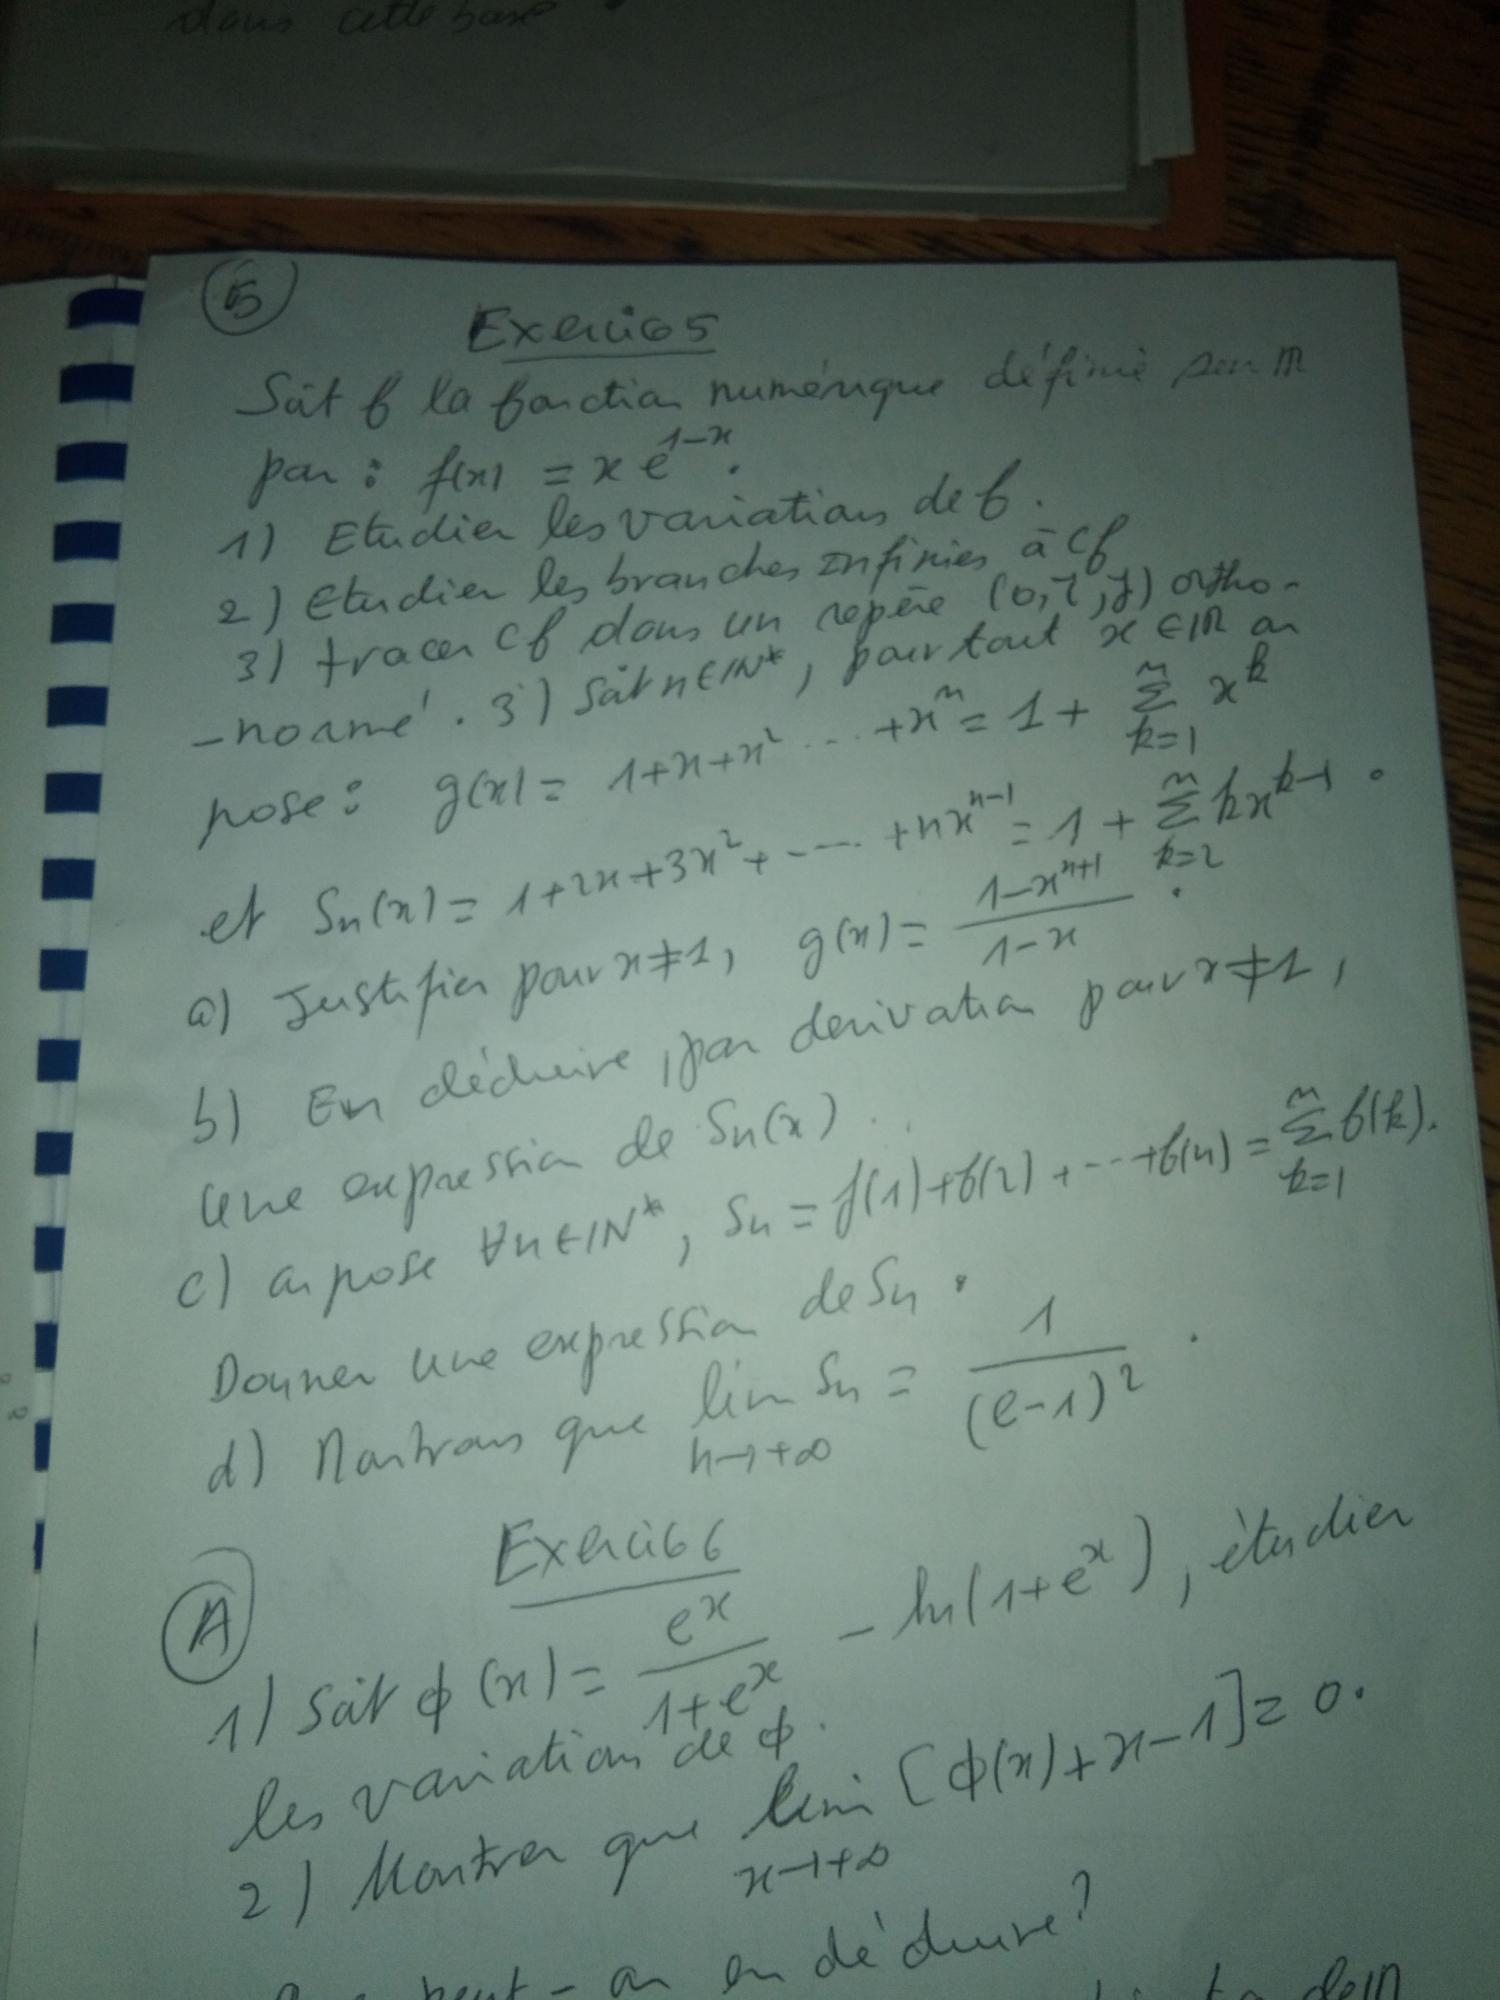 dans cette base
5
Exercice 5
Soit f la fonction numérique définie sur IR
par : f(x) = x e^{1-x}.
1) Etudier les variations de f.
2) Etudier les branches infinies à Cf
3) tracer Cf dans un repère (o, i, j) ortho-
-normé. 3) Soit n ∈ IN*, pour tout x ∈ IR on
pose : g(x) = 1+x+x² ... +x^n = 1 + Σ_{k=1}^{n} x^k
et Sn(x) = 1+2x+3x²+ .... +nx^{n-1} = 1 + Σ_{k=2}^{n} kx^{k-1}.
a) Justifier pour x≠1, g(x) = \frac{1-x^{n+1}}{1-x}.
b) En déduire, par derivation pour x≠1,
une expression de Sn(x).
c) on pose ∀n∈IN*, Sn = f(1)+f(2)+ ... +f(n) = Σ_{k=1}^{n} f(k).
Donner une expression de Sn.
d) Montrons que lim_{n→+∞} Sn = \frac{1}{(e-1)²}.
Exercice 6
A
1) Soit ϕ(x) = \frac{e^x}{1+e^x} - ln(1+e^x), étudier
les variation de ϕ.
2) Montrer que lim_{x→+∞} [ϕ(x)+x-1] = 0.
peut-on en déduire?